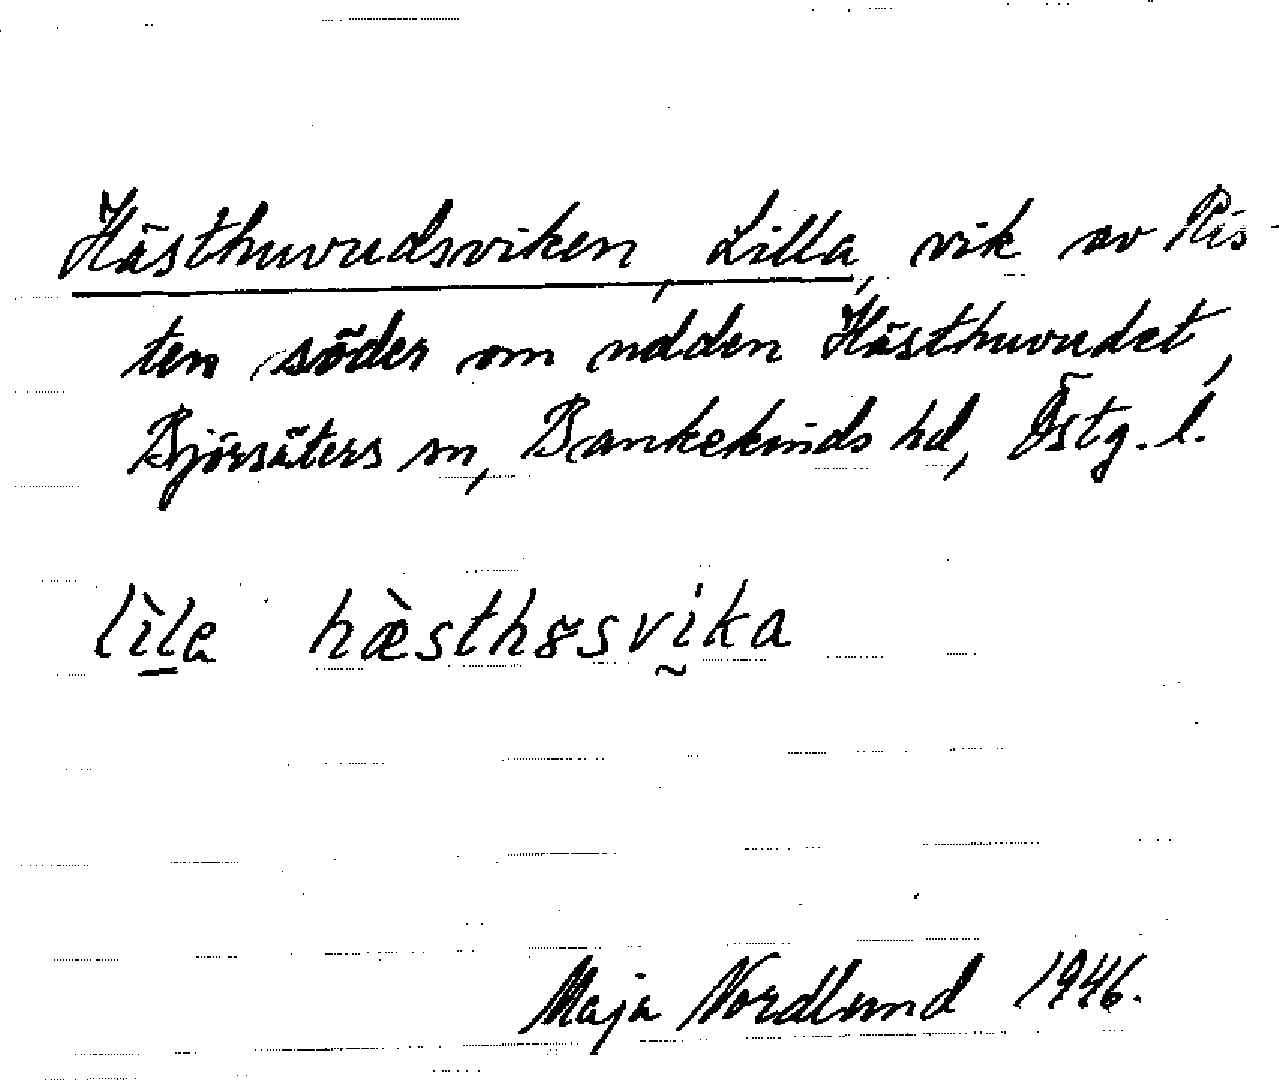 Hästhuvudsviken, Lilla, vik av Ris-
ten söder om udden Hästhuvudet,
Björsäters sn, Bankekinds hd, Östg. l.
lìla hæ̀sthȣsvika
Maja Nordlund 1946.